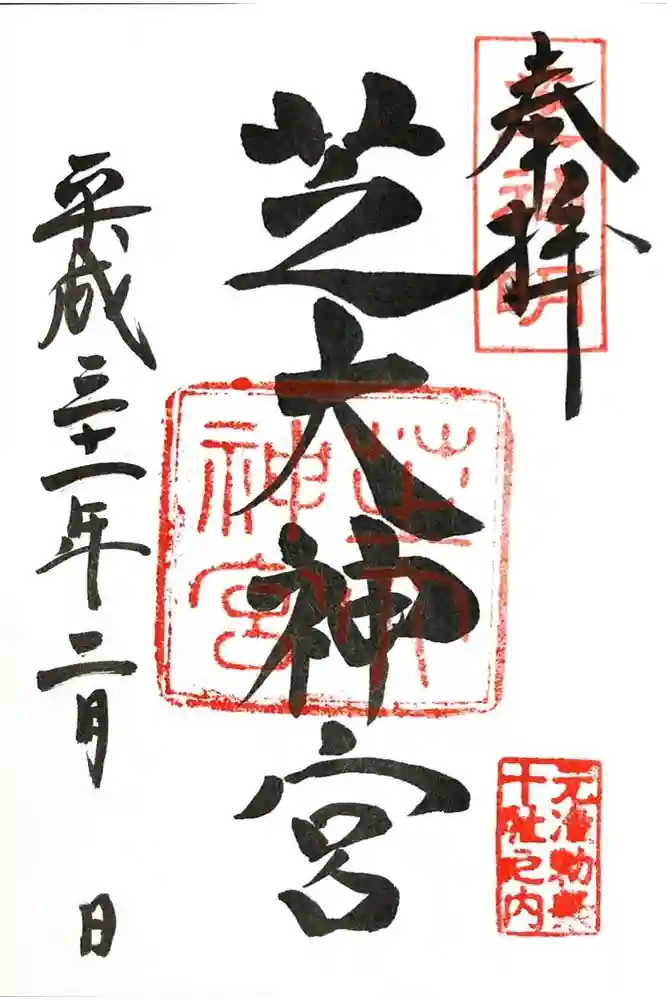 奉拝
芝神明
芝大神宮
芝大
神宮
元准勅祭
十社之内
平成三十一年二月 日